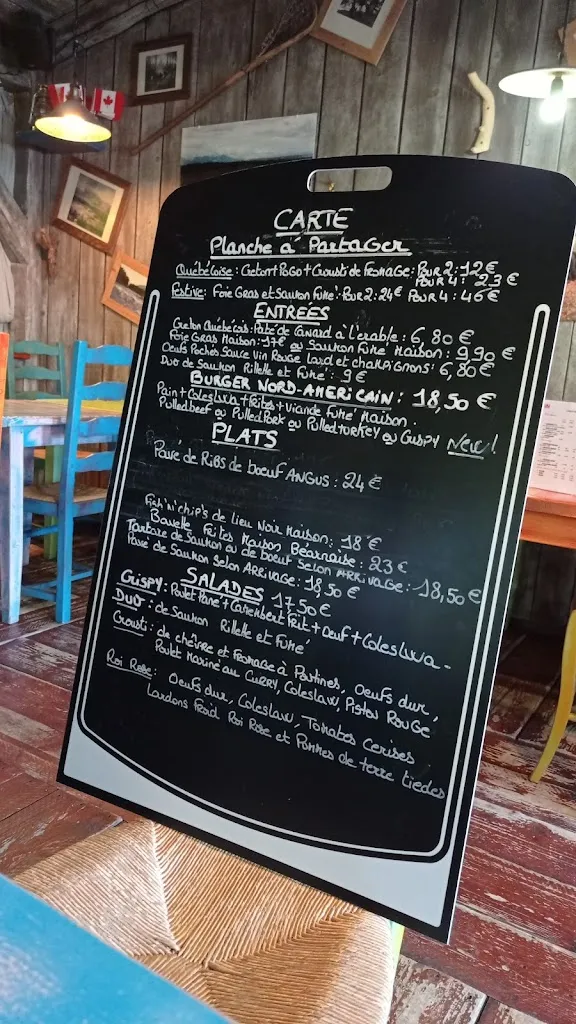 CARTE
Planche à Partager
Québécoise: Creton + Pogo + Crousti de Fromage: Pour 2: 12€
Pour 4: 23€
Festive: Foie Gras et Saumon Fumé: Pour 2: 24€ Pour 4: 46€
ENTRÉES
Creton Québécois: Paté de Canard à L'erable: 6,80€
Foie Gras Maison: 17€ ou Saumon Fumé Maison: 9,90€
Oeufs Pochés Sauce Vin Rouge Lard et champignons: 6,80€
Duo de Saumon Rillette et Fumé: 9€
BURGER NORD-AMERICAIN: 18,50€
Pain + Coleslaw + Frites + Viande Fumé Maison.
Pulled beef ou Pulled Pork ou Pulled Turkey ou Crispy New!
PLATS
Pavé de Ribs de boeuf ANGUS: 24€
Fish'n'chip's de Lieu Noir Maison: 18€
Bavette Frites Maison Béarnaise: 23€
Tartare de Saumon ou de boeuf Selon ARRIVAGE: 18,50€
Pavé de Saumon Selon ARRIVAGE: 18,50€
SALADES 17,50€
Crispy: Poulet Pané + Camembert Frit + Oeuf + Coleslaw
Duo: de Saumon Rillette et Fumé
Crousti: de chèvre et Fromage à Poutines, Oeufs dur,
Poulet Mariné au Curry, Coleslaw, Pistou Rouge
Roi Rose: Oeufs dur, Coleslaw, Tomates Cerises
Lardons Froid Roi Rose et Pommes de terre tiedes